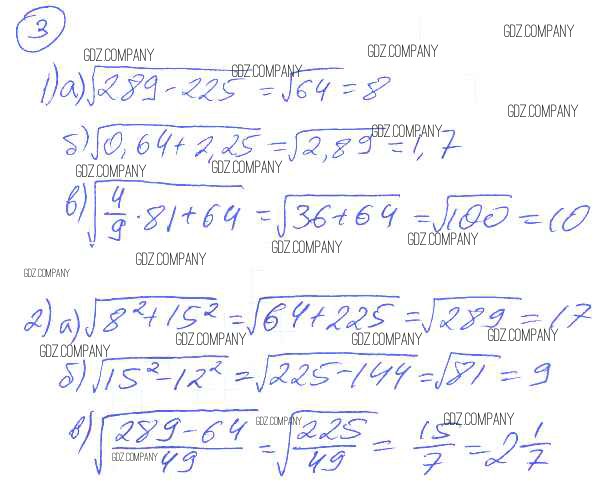 3
GDZ.COMPANY GDZ.COMPANY GDZ.COMPANY GDZ.COMPANY
1) а) √(289 - 225) = √64 = 8
GDZ.COMPANY GDZ.COMPANY
б) √(0,64 + 2,25) = √2,89 = 1,7
GDZ.COMPANY GDZ.COMPANY
в) √(4/9 · 81 + 64) = √(36 + 64) = √100 = 10
GDZ.COMPANY GDZ.COMPANY GDZ.COMPANY
GDZ.COMPANY
2) а) √(8² + 15²) = √(64 + 225) = √289 = 17
GDZ.COMPANY GDZ.COMPANY GDZ.COMPANY GDZ.COMPANY
б) √(15² - 12²) = √(225 - 144) = √81 = 9
GDZ.COMPANY GDZ.COMPANY
в) √((289 - 64)/49) = √(225/49) = 15/7 = 2 1/7
GDZ.COMPANY